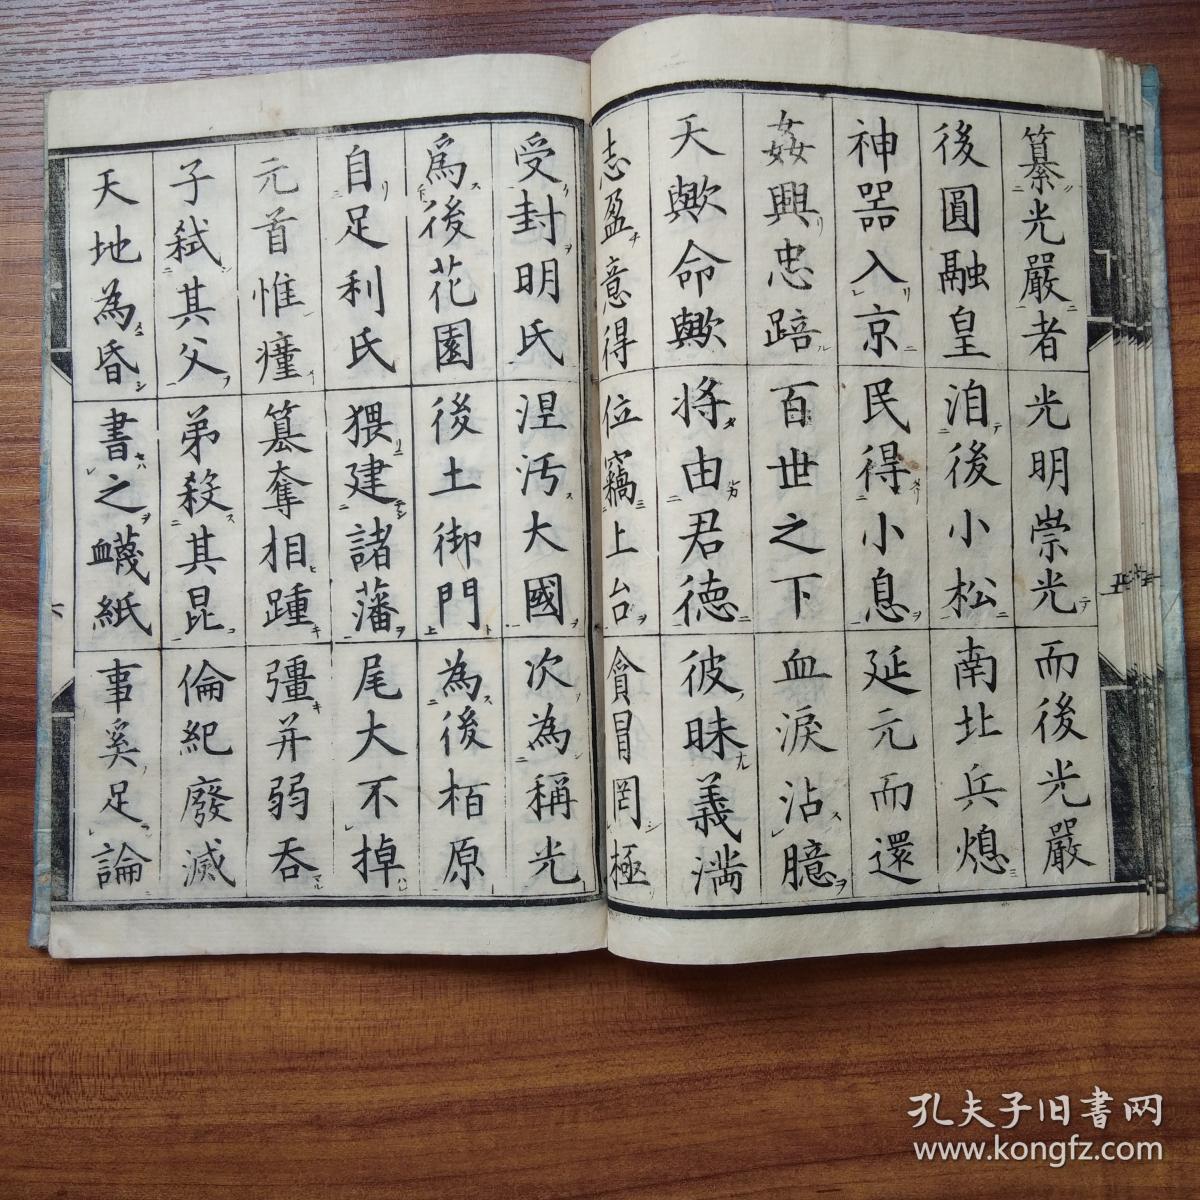 纂光嚴者光明崇光而後光嚴
後圓融皇洎後小松南北兵熄
神器入京民得小息延元而還
姦興忠踣百世之下血淚沾臆
天歟命歟將由君德彼昧義満
志盈意得位竊上台貪冒罔極
受封明氏涅汚大國次為稱光
爲後花園後土御門為後柏原
自足利氏猥建諸藩尾大不掉
元首惟癨簒奪相踵彊并弱呑
子弑其父弟殺其昆倫紀廢滅
天地為昏書之衊紙事奚足論
孔夫子旧书网
www.kongfz.com